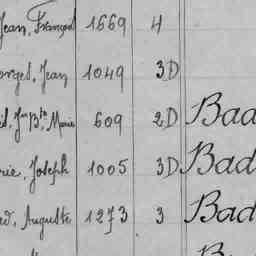 Jean, François 1669 4
orges, Jean 1049 3D
Jn Bte, Marie 609 2D Bad
rie, Joseph 1005 3D Bad
ed, Auguste 1273 3 Bad